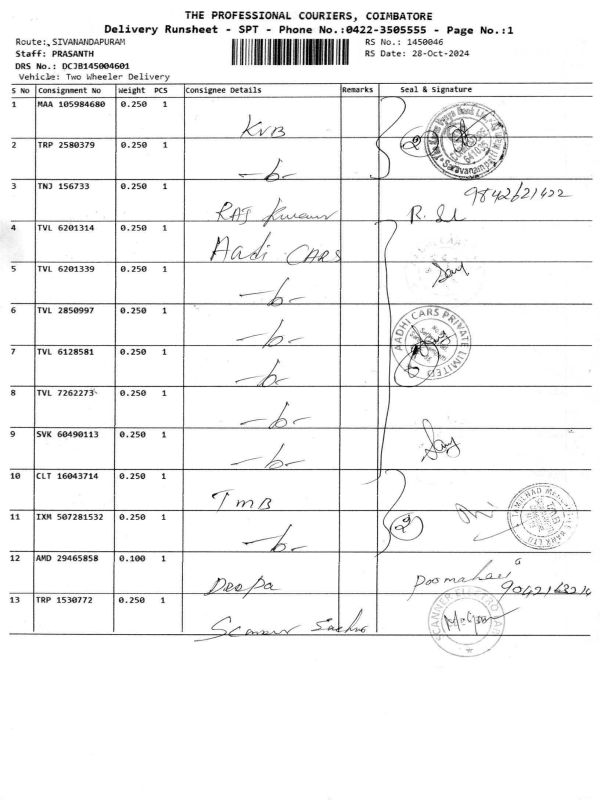 THE PROFESSIONAL COURIERS, COIMBATORE
Delivery Runsheet - SPT - Phone No.:0422-3505555 - Page No.:1
Route: SIVANANDAPURAM RS No.: 1450046
Staff: PRASANTH RS Date: 28-Oct-2024
DRS No.: DCJB145004601
Vehicle: Two Wheeler Delivery
S No Consignment No Weight PCS Consignee Details Remarks Seal & Signature
1 MAA 105984680 0.250 1 KVB
2 TRP 2580379 0.250 1 -b-
3 TNJ 156733 0.250 1 RAJ Kumar 9842621422
4 TVL 6201314 0.250 1 Aadi CARS
5 TVL 6201339 0.250 1 -b-
6 TVL 2850997 0.250 1 -b-
AADHI CARS PRIVATE LIMITED
7 TVL 6128581 0.250 1 -b-
8 TVL 7262273 0.250 1 -b-
9 SVK 60490113 0.250 1 -b-
10 CLT 16043714 0.250 1 TMB
11 IXM 507281532 0.250 1 -b- 2
12 AMD 29465858 0.100 1 Deepa
13 TRP 1530772 0.250 1